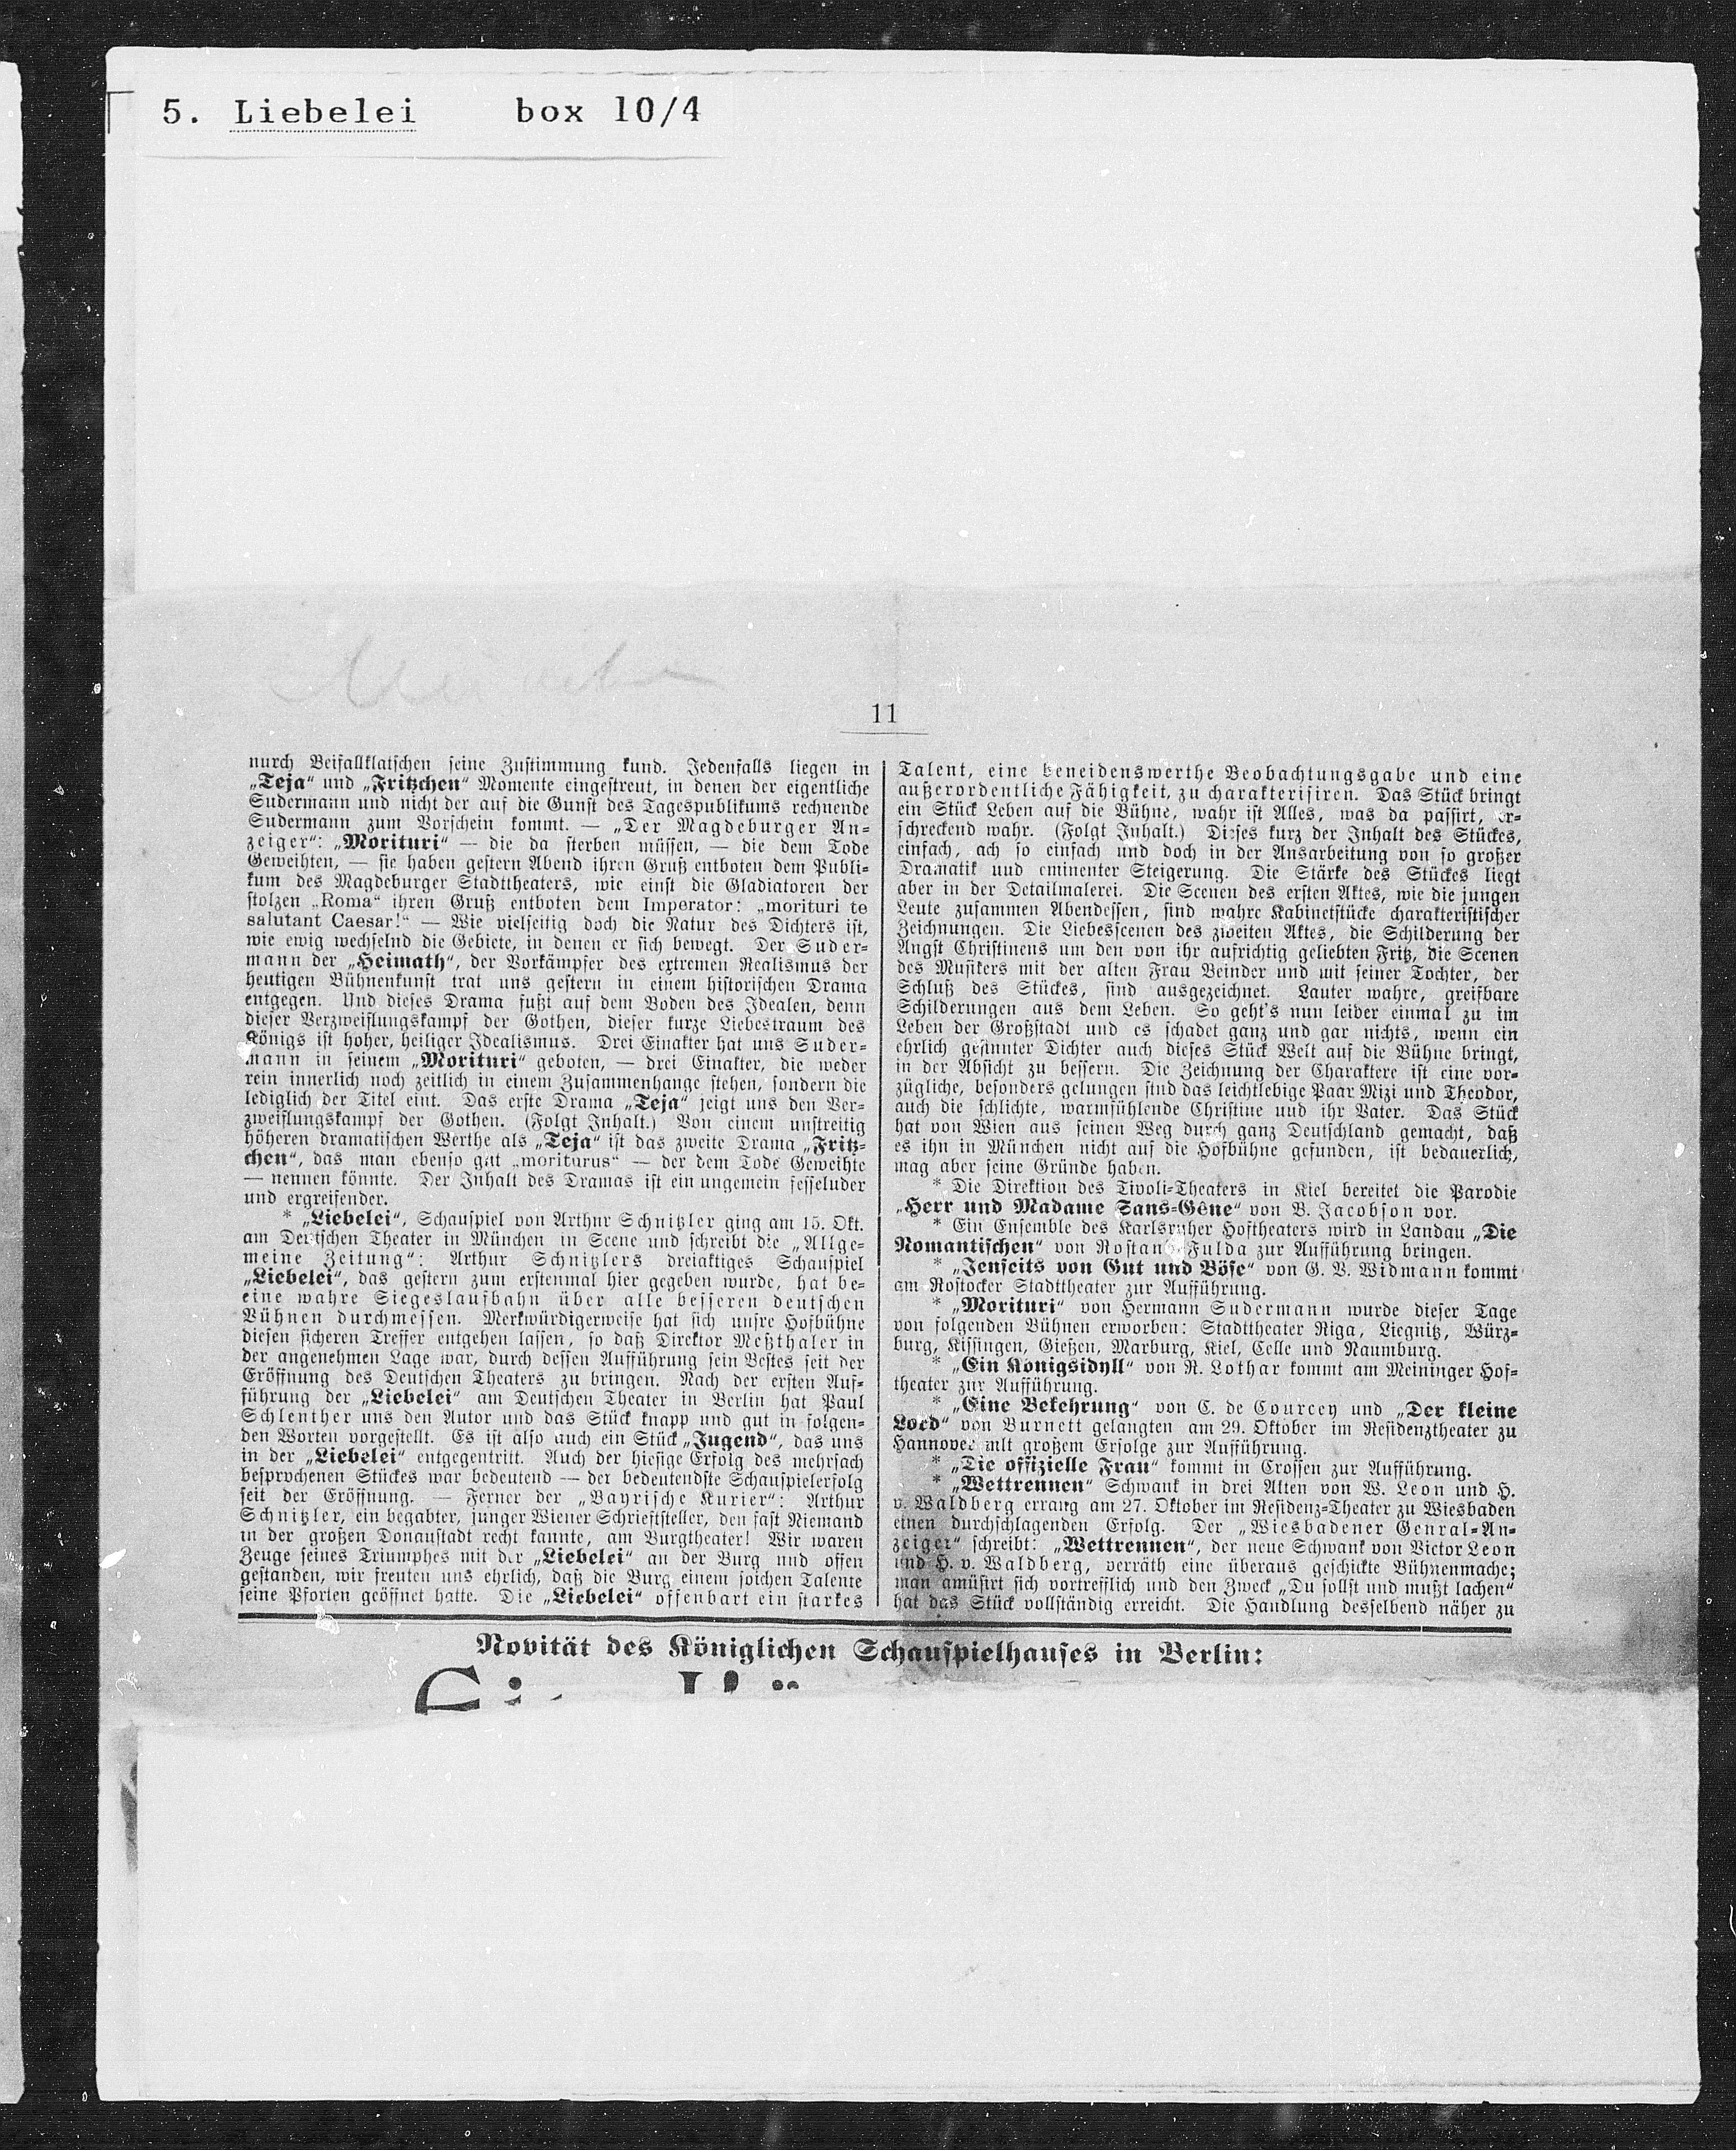 5. Liebelei box 10/4
11
nurch Beifallklatschen seine Zustimmung kund. Jedenfalls liegen in
„Teja“ und „Fritzchen“ Momente eingestreut, in denen der eigentliche
Sudermann und nicht der auf die Gunst des Tagespublikums rechnende
Sudermann zum Vorschein kommt. — „Der Magdeburger An-
zeiger“: „Morituri“ — die da sterben müssen, — die dem Tode
Geweihten, — sie haben gestern Abend ihren Gruß entboten dem Publi-
kum des Magdeburger Stadttheaters, wie einst die Gladiatoren der
stolzen „Roma“ ihren Gruß entboten dem Imperator: „morituri te
salutant Caesar!“ — Wie vielseitig doch die Natur des Dichters ist,
wie ewig wechselnd die Gebiete, in denen er sich bewegt. Der Suder-
mann der „Heimath“, der Vorkämpfer des extremen Realismus der
heutigen Bühnenkunst trat uns gestern in einem historischen Drama
entgegen. Und dieses Drama fußt auf dem Boden des Idealen, denn
dieser Verzweiflungskampf der Gothen, dieser kurze Liebestraum des
Königs ist hoher, heiliger Idealismus. Drei Einakter hat uns Suder-
mann in seinem „Morituri“ geboten, — drei Einakter, die weder
rein innerlich noch zeitlich in einem Zusammenhange stehen, sondern die
lediglich der Titel eint. Das erste Drama „Teja“ zeigt uns den Ver-
zweiflungskampf der Gothen. (Folgt Inhalt.) Von einem unstreitig
höheren dramatischen Werthe als „Teja“ ist das zweite Drama „Fritz-
chen“, das man ebenso gut „moriturus“ — der dem Tode Geweihte
— nennen könnte. Der Inhalt des Dramas ist ein ungemein fesselnder
und ergreifender.
* „Liebelei“, Schauspiel von Arthur Schnitzler ging am 15. Okt.
am Deutschen Theater in München in Scene und schreibt die „Allge-
meine Zeitung“: Arthur Schnitzlers dreiaktiges Schauspiel
„Liebelei“, das gestern zum erstenmal hier gegeben wurde, hat be-
eine wahre Siegeslaufbahn über alle besseren deutschen
Bühnen durchmessen. Merkwürdigerweise hat sich unsre Hofbühne
diesen sicheren Treffer entgehen lassen, so daß Direktor Meßthaler in
der angenehmen Lage war, durch dessen Aufführung sein Bestes seit der
Eröffnung des Deutschen Theaters zu bringen. Nach der ersten Auf-
führung der „Liebelei“ am Deutschen Theater in Berlin hat Paul
Schlenther uns den Autor und das Stück knapp und gut in folgen-
den Worten vorgestellt. Es ist also auch ein Stück „Jugend“, das uns
in der „Liebelei“ entgegentritt. Auch der hiesige Erfolg des mehrfach
besprochenen Stückes war bedeutend — der bedeutendste Schauspielerfolg
seit der Eröffnung. — Ferner der „Bayrische Kurier“: Arthur
Schnitzler, ein begabter, junger Wiener Schriftsteller, den fast Niemand
in der großen Donaustadt recht kannte, am Burgtheater! Wir waren
Zeuge seines Triumphes mit der „Liebelei“ an der Burg und offen
gestanden, wir freuten uns ehrlich, daß die Burg einem solchen Talente
seine Pforten geöffnet hatte. Die „Liebelei“ offenbart ein starkes
Talent, eine beneidenswerthe Beobachtungsgabe und eine
außerordentliche Fähigkeit, zu charakterisiren. Das Stück bringt
ein Stück Leben auf die Bühne, wahr ist Alles, was da passirt, er-
schreckend wahr. (Folgt Inhalt.) Dieses kurz der Inhalt des Stückes,
einfach, ach so einfach und doch in der Ausarbeitung von so großer
Dramatik und eminenter Steigerung. Die Stärke des Stückes liegt
aber in der Detailmalerei. Die Scenen des ersten Aktes, wie die jungen
Leute zusammen Abendessen, sind wahre Kabinetstücke charakteristischer
Zeichnungen. Die Liebesscenen des zweiten Aktes, die Schilderung der
Angst Christinens um den von ihr aufrichtig geliebten Fritz, die Scenen
des Musikers mit der alten Frau Beinder und mit seiner Tochter, der
Schluß des Stückes, sind ausgezeichnet. Lauter wahre, greifbare
Schilderungen aus dem Leben. So geht's nun leider einmal zu im
Leben der Großstadt und es schadet ganz und gar nichts, wenn ein
ehrlich gesinnter Dichter auch dieses Stück Welt auf die Bühne bringt,
in der Absicht zu bessern. Die Zeichnung der Charaktere ist eine vor-
zügliche, besonders gelungen sind das leichtlebige Paar Mizi und Theodor,
auch die schlichte, warmfühlende Christine und ihr Vater. Das Stück
hat von Wien aus seinen Weg durch ganz Deutschland gemacht, daß
es ihn in München nicht auf die Hofbühne gefunden, ist bedauerlich,
mag aber seine Gründe haben.
* Die Direktion des Tivoli-Theaters in Kiel bereitet die Parodie
„Herr und Madame Sans-Gêne“ von B. Jacobson vor.
* Ein Ensemble des Karlsruher Hoftheaters wird in Landau „Die
Romantischen“ von Rostand-Fulda zur Aufführung bringen.
* „Jenseits von Gut und Böse“ von G. V. Widmann kommt
am Rostocker Stadttheater zur Aufführung.
* „Morituri“ von Hermann Sudermann wurde dieser Tage
von folgenden Bühnen erworben: Stadttheater Riga, Liegnitz, Würz-
burg, Kissingen, Gießen, Marburg, Kiel, Celle und Naumburg.
* „Ein Königsidyll“ von R. Lothar kommt am Meininger Hof-
theater zur Aufführung.
* „Eine Bekehrung“ von C. de Courcey und „Der kleine
Lord“ von Burnett gelangten am 29. Oktober im Residenztheater zu
Hannover mit großem Erfolge zur Aufführung.
* „Die offizielle Frau“ kommt in Crossen zur Aufführung.
* „Wettrennen“ Schwank in drei Akten von W. Leon und H.
v. Waldberg errang am 27. Oktober im Residenz-Theater zu Wiesbaden
einen durchschlagenden Erfolg. Der „Wiesbadener Genral-An-
zeiger“ schreibt: „Wettrennen“, der neue Schwank von Victor Leon
und H. v. Waldberg, verräth eine überaus geschickte Bühnenmache;
man amüsirt sich vortrefflich und den Zweck „Du sollst und mußt lachen“
hat das Stück vollständig erreicht. Die Handlung desselbend näher zu
Novität des Königlichen Schauspielhauses in Berlin: